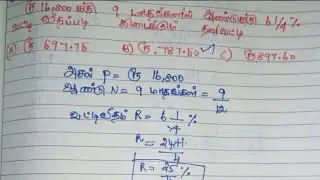 (ரூ 16,800க்கு 9 மாதங்களில் ஆண்டுக்கு 6 1/4 %
வட்டி வீதப்படி கிடைக்கும் தனிவட்டி
A) ரூ 697.75 B) ரூ.787.50 ✓ C) ரூ897.50
அசல் P = ரூ 16,800
ஆண்டு N = 9 மாதங்கள் = 9/12
வட்டிவீதம் R = 6 1/4 %
R = 24+1/4
R = 25 %